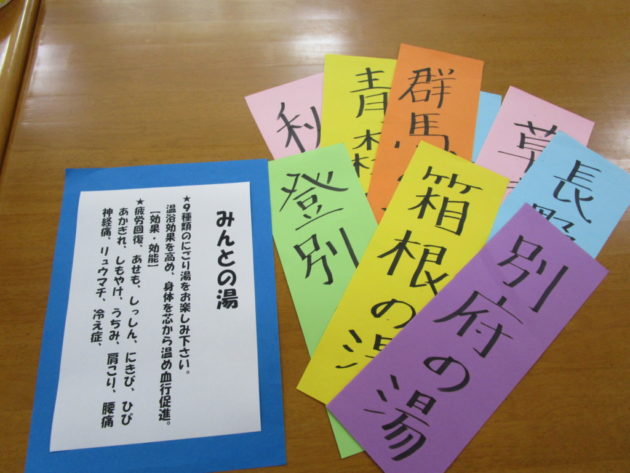 みんとの湯
★9種類のにごり湯をお楽しみ下さい。
温浴効果を高め、身体を芯から温め血行促進。
【効果・効能】
★疲労回復、あせも、しっしん、にきび、ひび
あかぎれ、しもやけ、うちみ、肩こり、腰痛
神経痛、リュウマチ、冷え症、
青森
群馬
草
長野
登別
箱根の湯
別府の湯